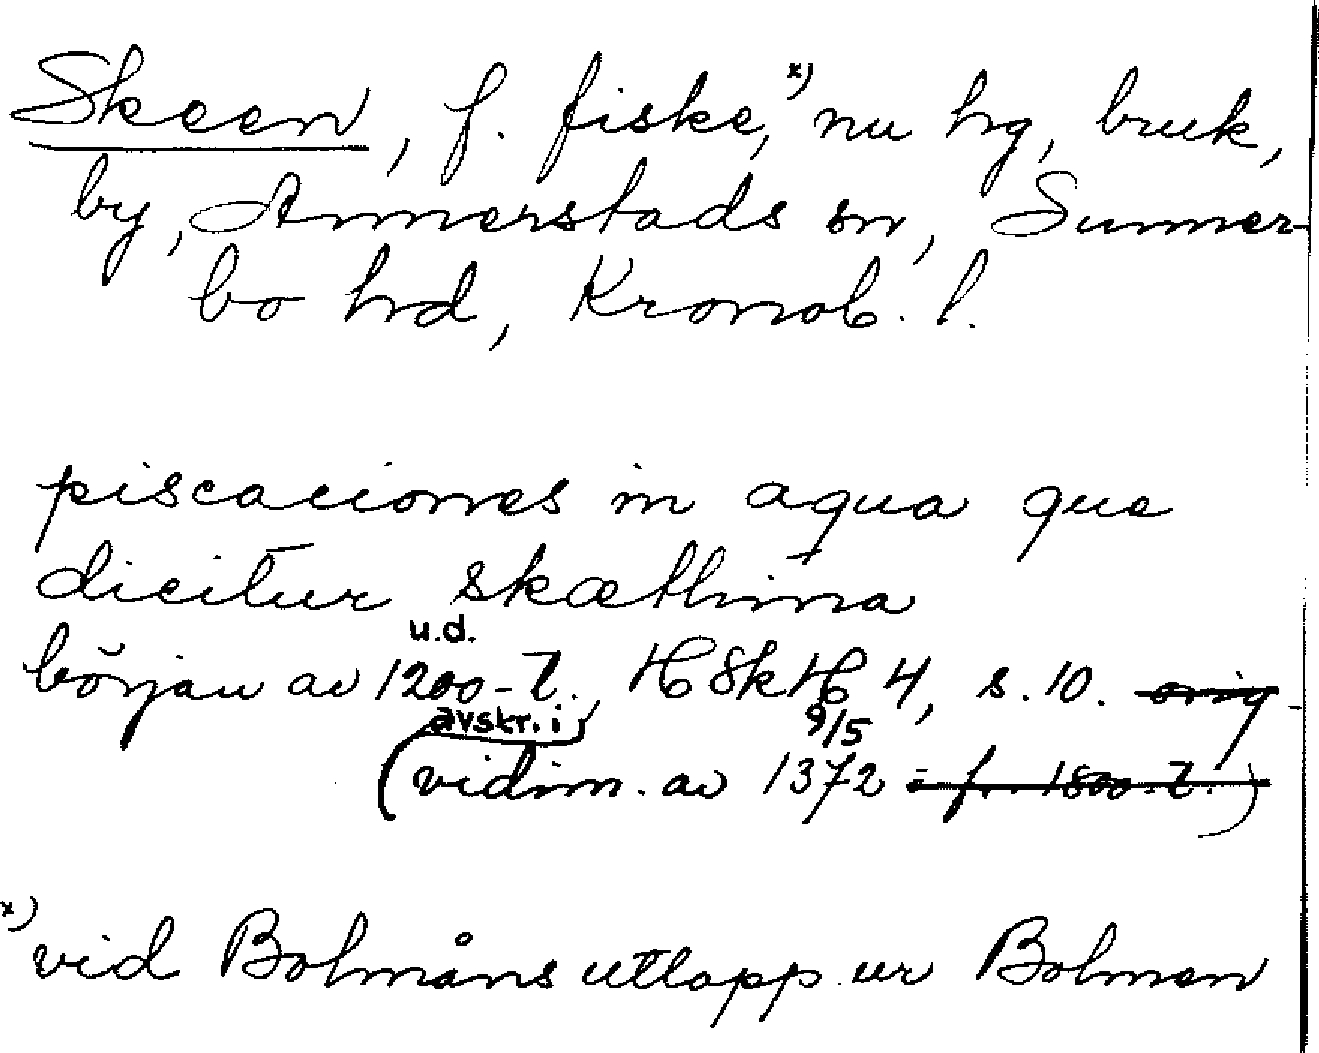 Skeen, f. fiske,x) nu hg, bruk,
by, Annerstads sn, Sunner-
bo hd, Kronob. l.
piscaciones in aqua que
dicitur skæthinna
u.d.
början av 1200-t., HSkH 4, s. 10. orig.
avskr. i 9/5
(vidim. av 1372 - f.. 1800-t.)
x) vid Bolmåns utlopp ur Bolmen